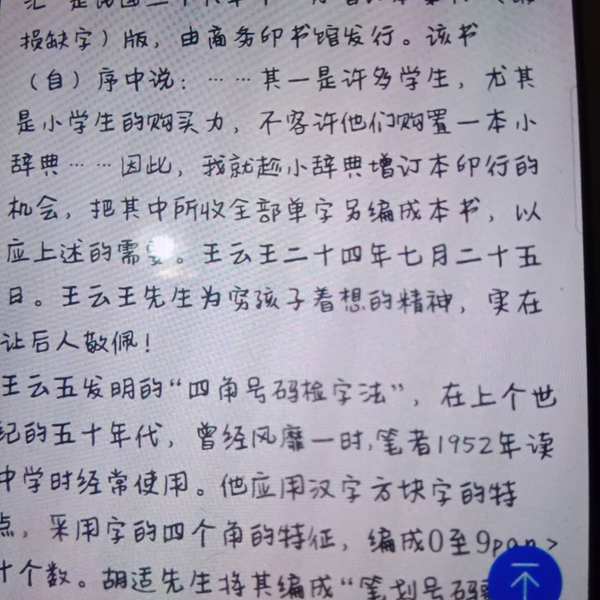 汇"是民国二十六年
损缺字）版，由商务印书馆发行。该书
（自）序中说：……其一是许多学生，尤其
是小学生的购买力，不容许他们购置一本小
辞典……因此，我就趁小辞典增订本印行的
机会，把其中所收全部单字另编成本书，以
应上述的需。王云王二十四年七月二十五
日。王云王先生为穷孩子着想的精神，实在
让后人敬佩！
王云五发明的“四角号码检字法”，在上个世
纪的五十年代，曾经风靡一时，笔者1952年读
中学时经常使用。他应用汉字方块字的特
点，采用字的四个角的特征，编成0至9pan>
十个数。胡适先生将其编成“笔划号码